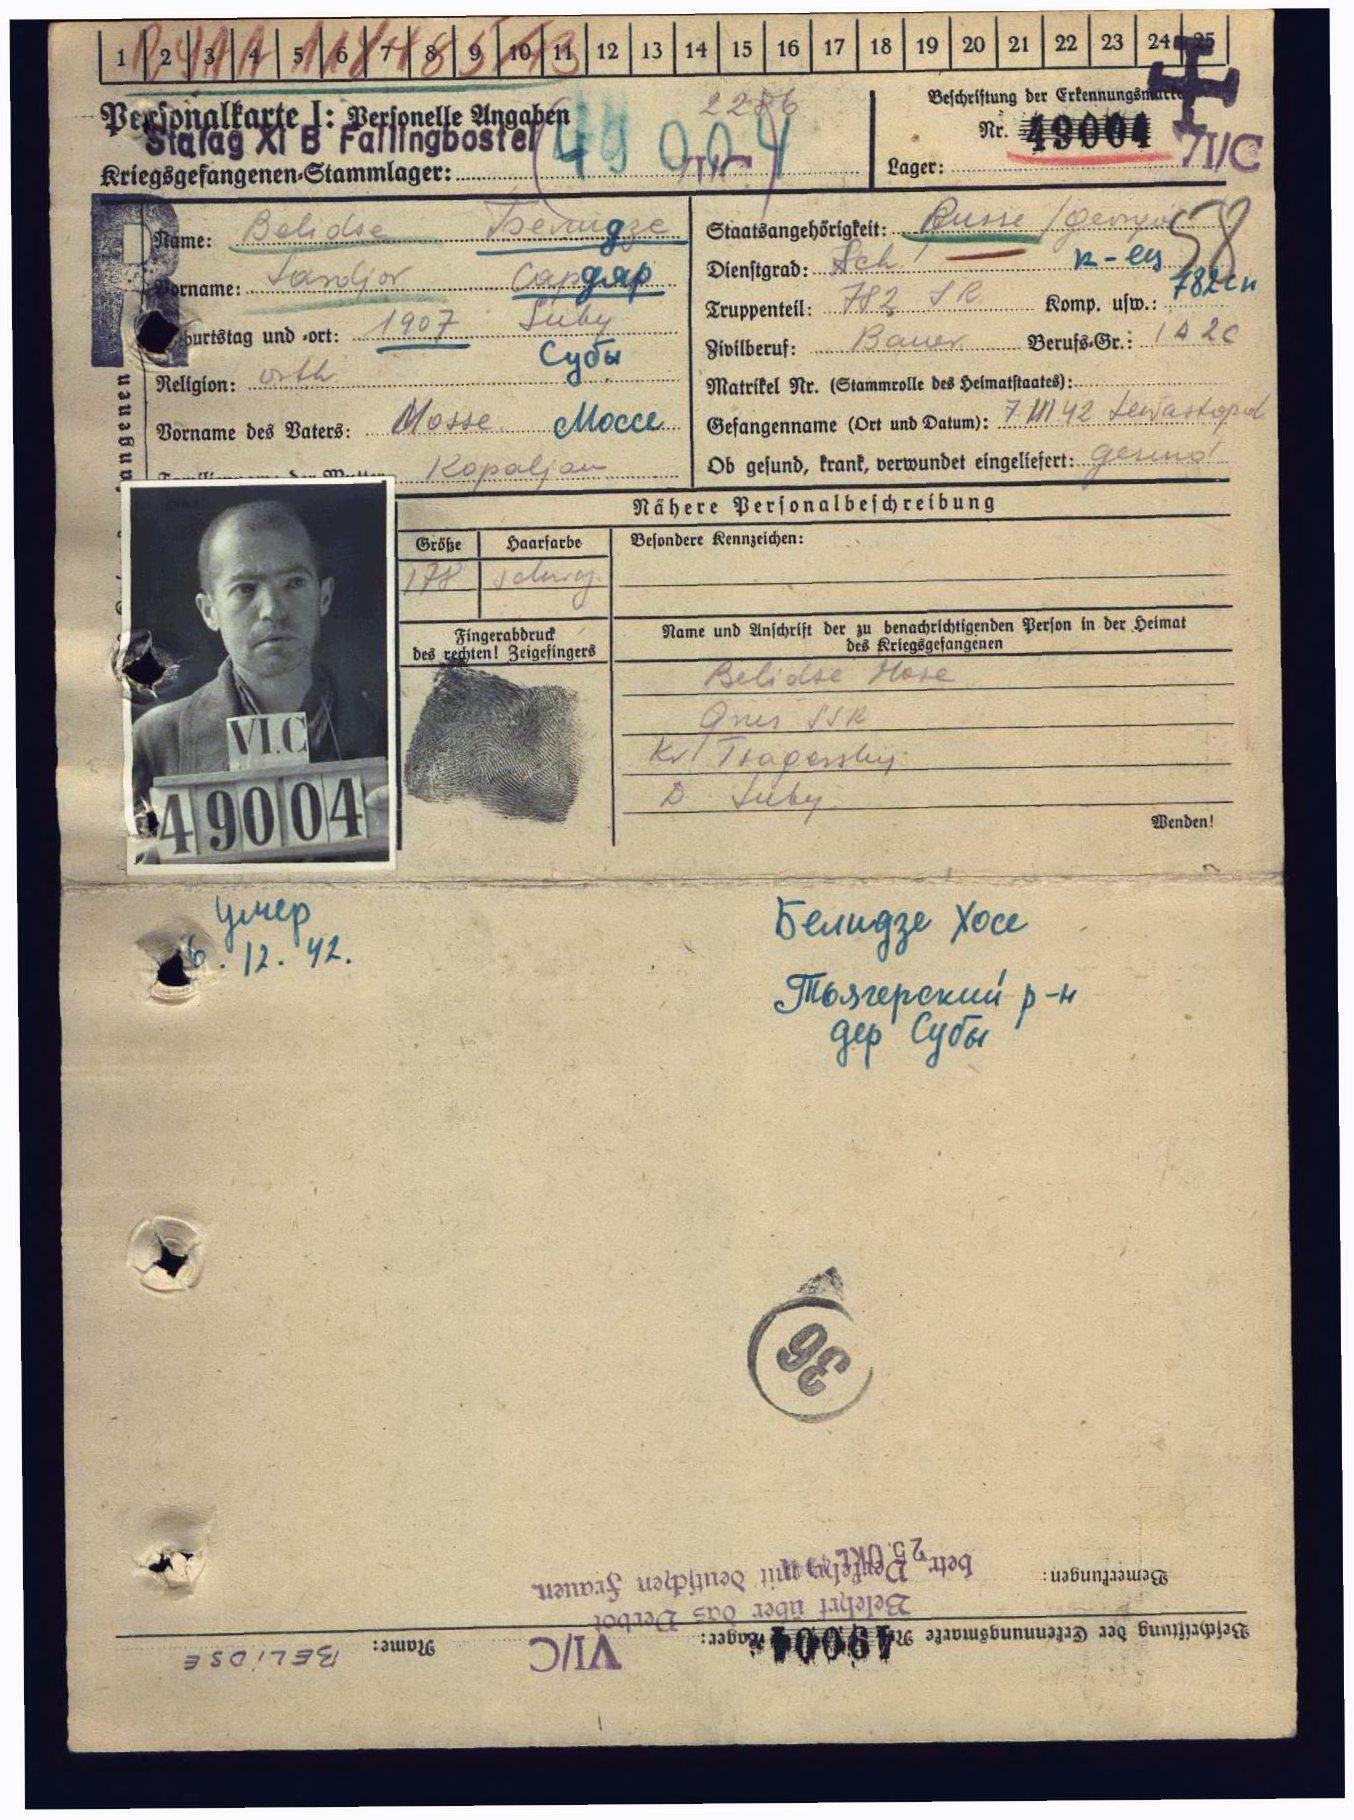 1 2 3 4 5 6 7 8 9 10 11 12 13 14 15 16 17 18 19 20 21 22 23 24 25
Personalkarte I: Personelle Angaben
2286
Beschriftung der Erkennungsmarke
Stalag XI B Fallingbostel
49004
Nr. 49004
VI/C
Kriegsgefangenen-Stammlager:
VI/C
Lager:
Name: Belidse Белидзе
Staatsangehörigkeit: Russe /
58
Vorname: Sandjor Сардяр
Dienstgrad: Sch.
Truppenteil: 782 SR Komp. usw.: 782 сп
Geburtstag und -ort: 1907 Suby
Субы
Zivilberuf: Bauer Berufs-Gr.:
Religion: orth
Matrikel Nr. (Stammrolle des Heimatstaates):
Vorname des Vaters: Mosse Моссе
Gefangenname (Ort und Datum): 7. 42 Sewastopol
Kopaljan
Ob gesund, krank, verwundet eingeliefert: gesund
Nähere Personalbeschreibung
Größe Haarfarbe
Besondere Kennzeichen:
178 schwarz
Fingerabdruck
des rechten! Zeigefingers
Name und Anschrift der zu benachrichtigenden Person in der Heimat
des Kriegsgefangenen
Belidse Hose
SSR
Kr. Tsagerskij
D. Suby
Wenden!
VI.C
49004
умер
6.12.42.
Белидзе Хосе
Тьягерский р-н
дер Субы
36
Bemerkungen:
Belehrt über das Verbot
betr. Verkehr mit deutschen Frauen.
25. OKT.
Beschriftung der Erkennungsmarke Nr. 49004 Lager: VI/C
Name: BELIDSE